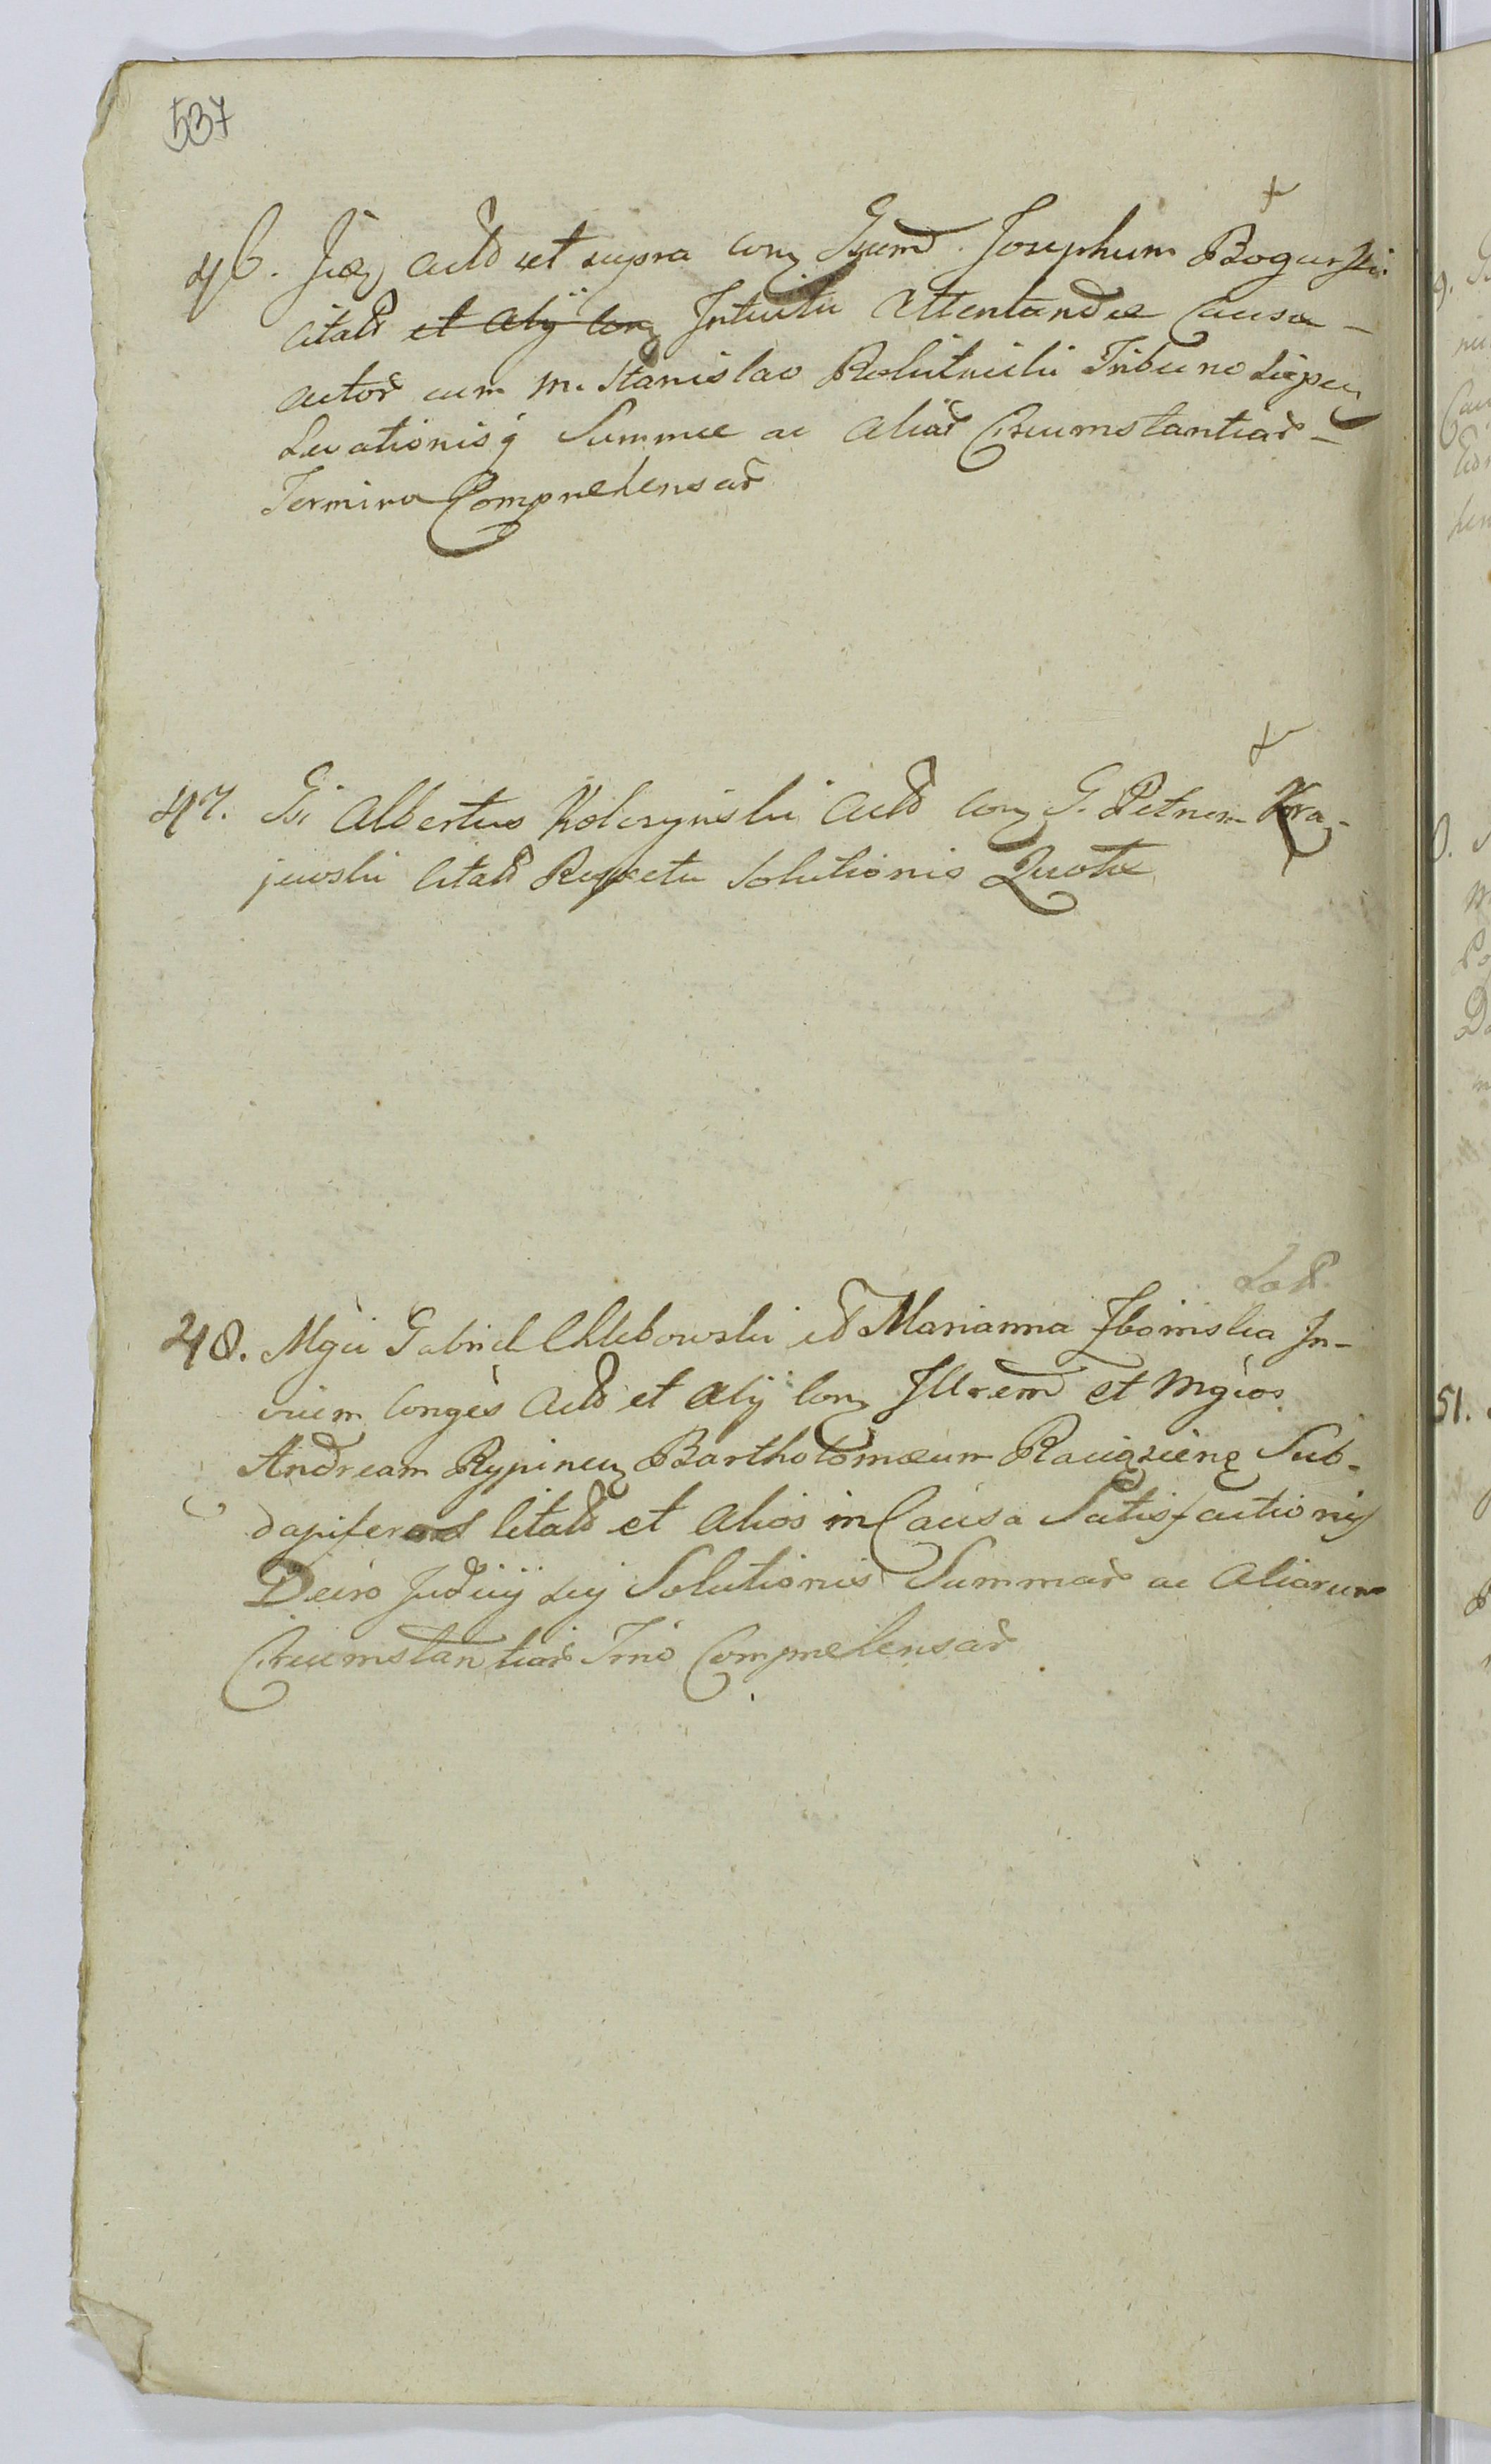 537
46. Jidē Actō ut supra con Gsum Josephum Bogurski
Citatō et Alÿ Con Intuitu Attentandæ Causæ
Actor̄ cum M. Stanislao Rokitnicki Tribuno Lipn
Levationisq Summæ ac Aliar̄ Circumstantiar̄
Termino Comprehensar̄
47. Gsi Albertus Kolczynski Actō Con G. Petrum Kra-
jewski Citatō Respectu Solutionis Quotæ
48. Mgci Gabriel Chlebowski et Marianna Zboinska In-
vicem Conges Actō et Alÿ Con Illrem et Mgcos
Andream Rypinen Bartholomæum Raciązięn Sub-
dapiferos Citatō et Alios in Causa Satisfactionis
Decro Judicÿ sui Solutionis Summar̄ ac Aliarum
Circumstantiar̄ Tmo Comprehensar̄
51.